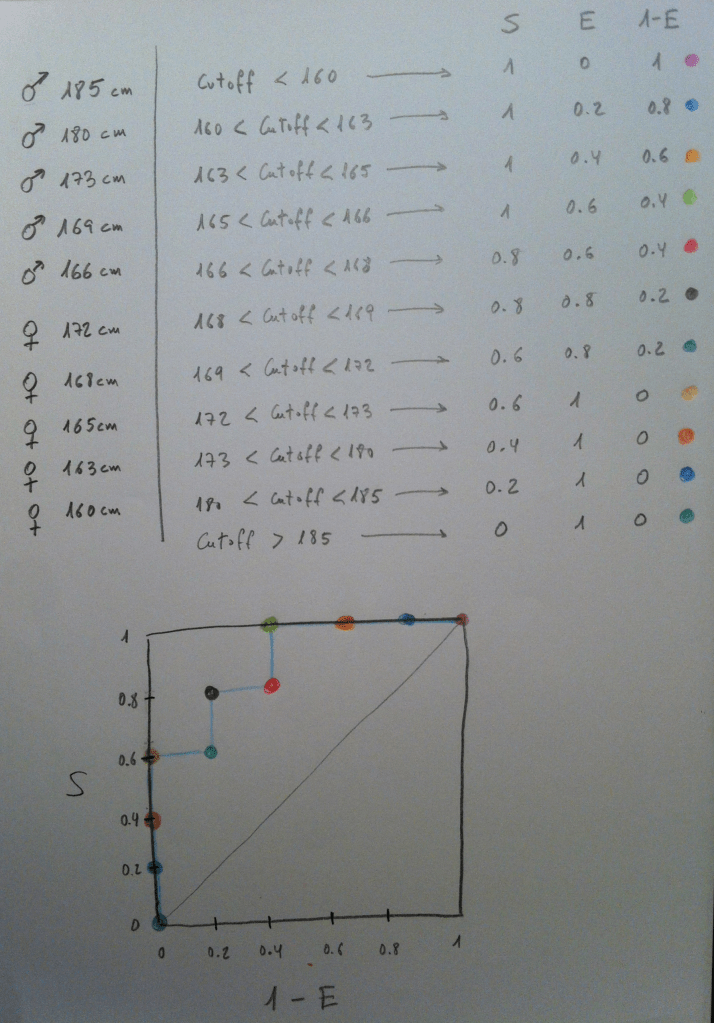 S E 1-E
♂ 185 cm
♂ 180 cm
♂ 173 cm
♂ 169 cm
♂ 166 cm
♀ 172 cm
♀ 168 cm
♀ 165 cm
♀ 163 cm
♀ 160 cm
Cutoff < 160 → 1 0 1
160 < Cutoff < 163 → 1 0.2 0.8
163 < Cutoff < 165 → 1 0.4 0.6
165 < Cutoff < 166 → 1 0.6 0.4
166 < Cutoff < 168 → 0.8 0.6 0.4
168 < Cutoff < 169 → 0.8 0.8 0.2
169 < Cutoff < 172 → 0.6 0.8 0.2
172 < Cutoff < 173 → 0.6 1 0
173 < Cutoff < 180 → 0.4 1 0
180 < Cutoff < 185 → 0.2 1 0
Cutoff > 185 → 0 1 0
1
0.8
0.6
S
0.4
0.2
0
0 0.2 0.4 0.6 0.8 1
1 - E